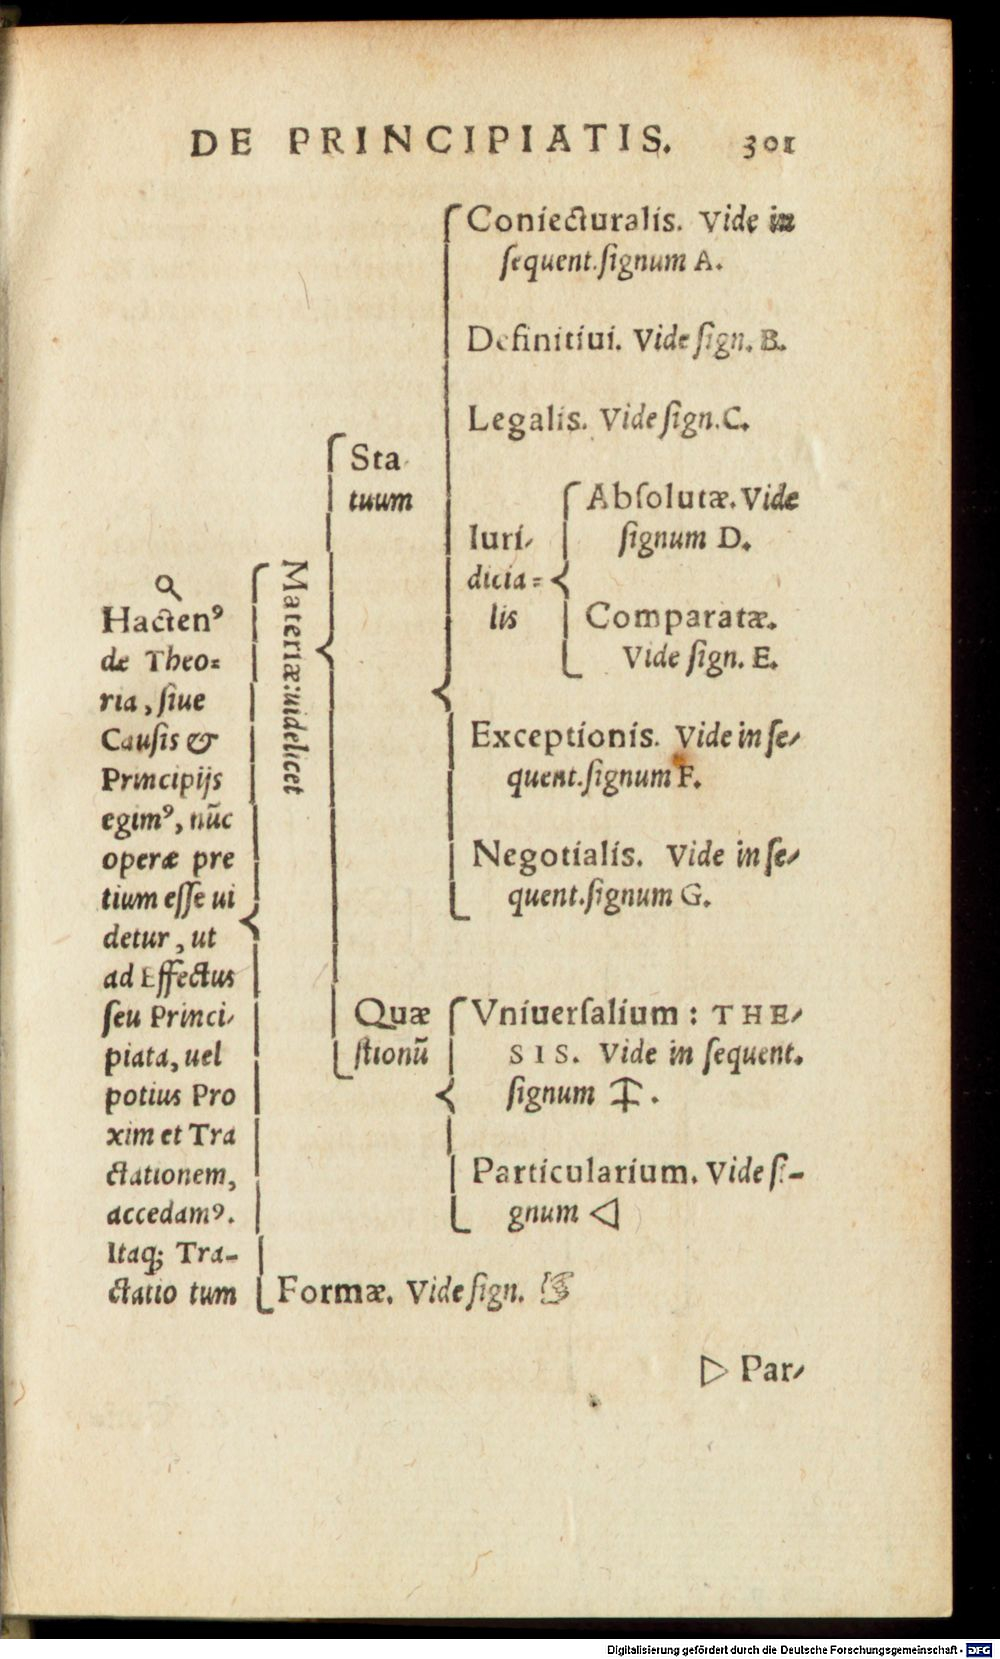 DE PRINCIPIATIS. 301
Hactenꝰ
de Theo⸗
ria, ſiue
Cauſis &
Principijs
egimꝰ, nūc
operæ pre
tium eſſe ui
detur, ut
ad Effectus
ſeu Princi⸗
piata, uel
potius Pro
xim et Tra
ctationem,
accedamꝰ.
Itaq; Tra-
ctatio tum
Materiæ: uidelicet
Sta
tuum
Coniecturalis. Vide in
ſequent. ſignum A.
Definitiui. Vide ſign. B.
Legalis. Vide ſign. C.
Iuri⸗
dicia⸗
lis
Abſolutæ. Vide
ſignum D.
Comparatæ.
Vide ſign. E.
Exceptionis. Vide in ſe⸗
quent. ſignum F.
Negotialis. Vide in ſe⸗
quent. ſignum G.
Quæ
ſtionū
Vniuerſalium: THE⸗
SIS. Vide in ſequent.
ſignum .
Particularium. Vide ſi-
gnum ◁
Formæ. Vide ſign. ☞
▷ Par⸗
Digitalisierung gefördert durch die Deutsche Forschungsgemeinschaft - DFG